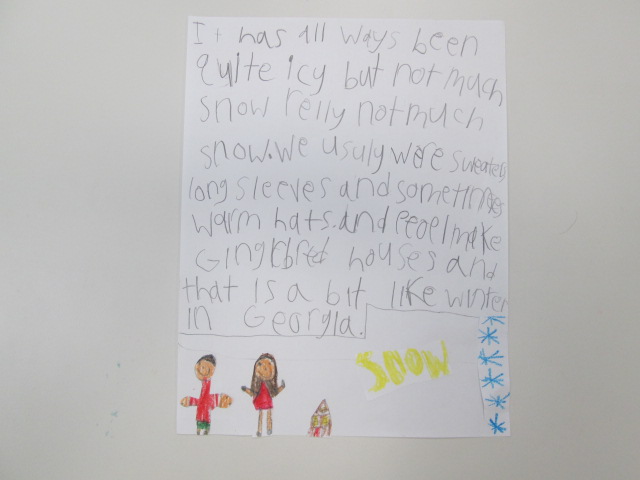 It has all ways been
quite icy but not much
snow relly not much
snow. We usuly were sweaters
long sleeves and sometimes
warm hats. and peopl make
Gingrbred houses and
that is a bit like winter
in Georgia.
SNOW